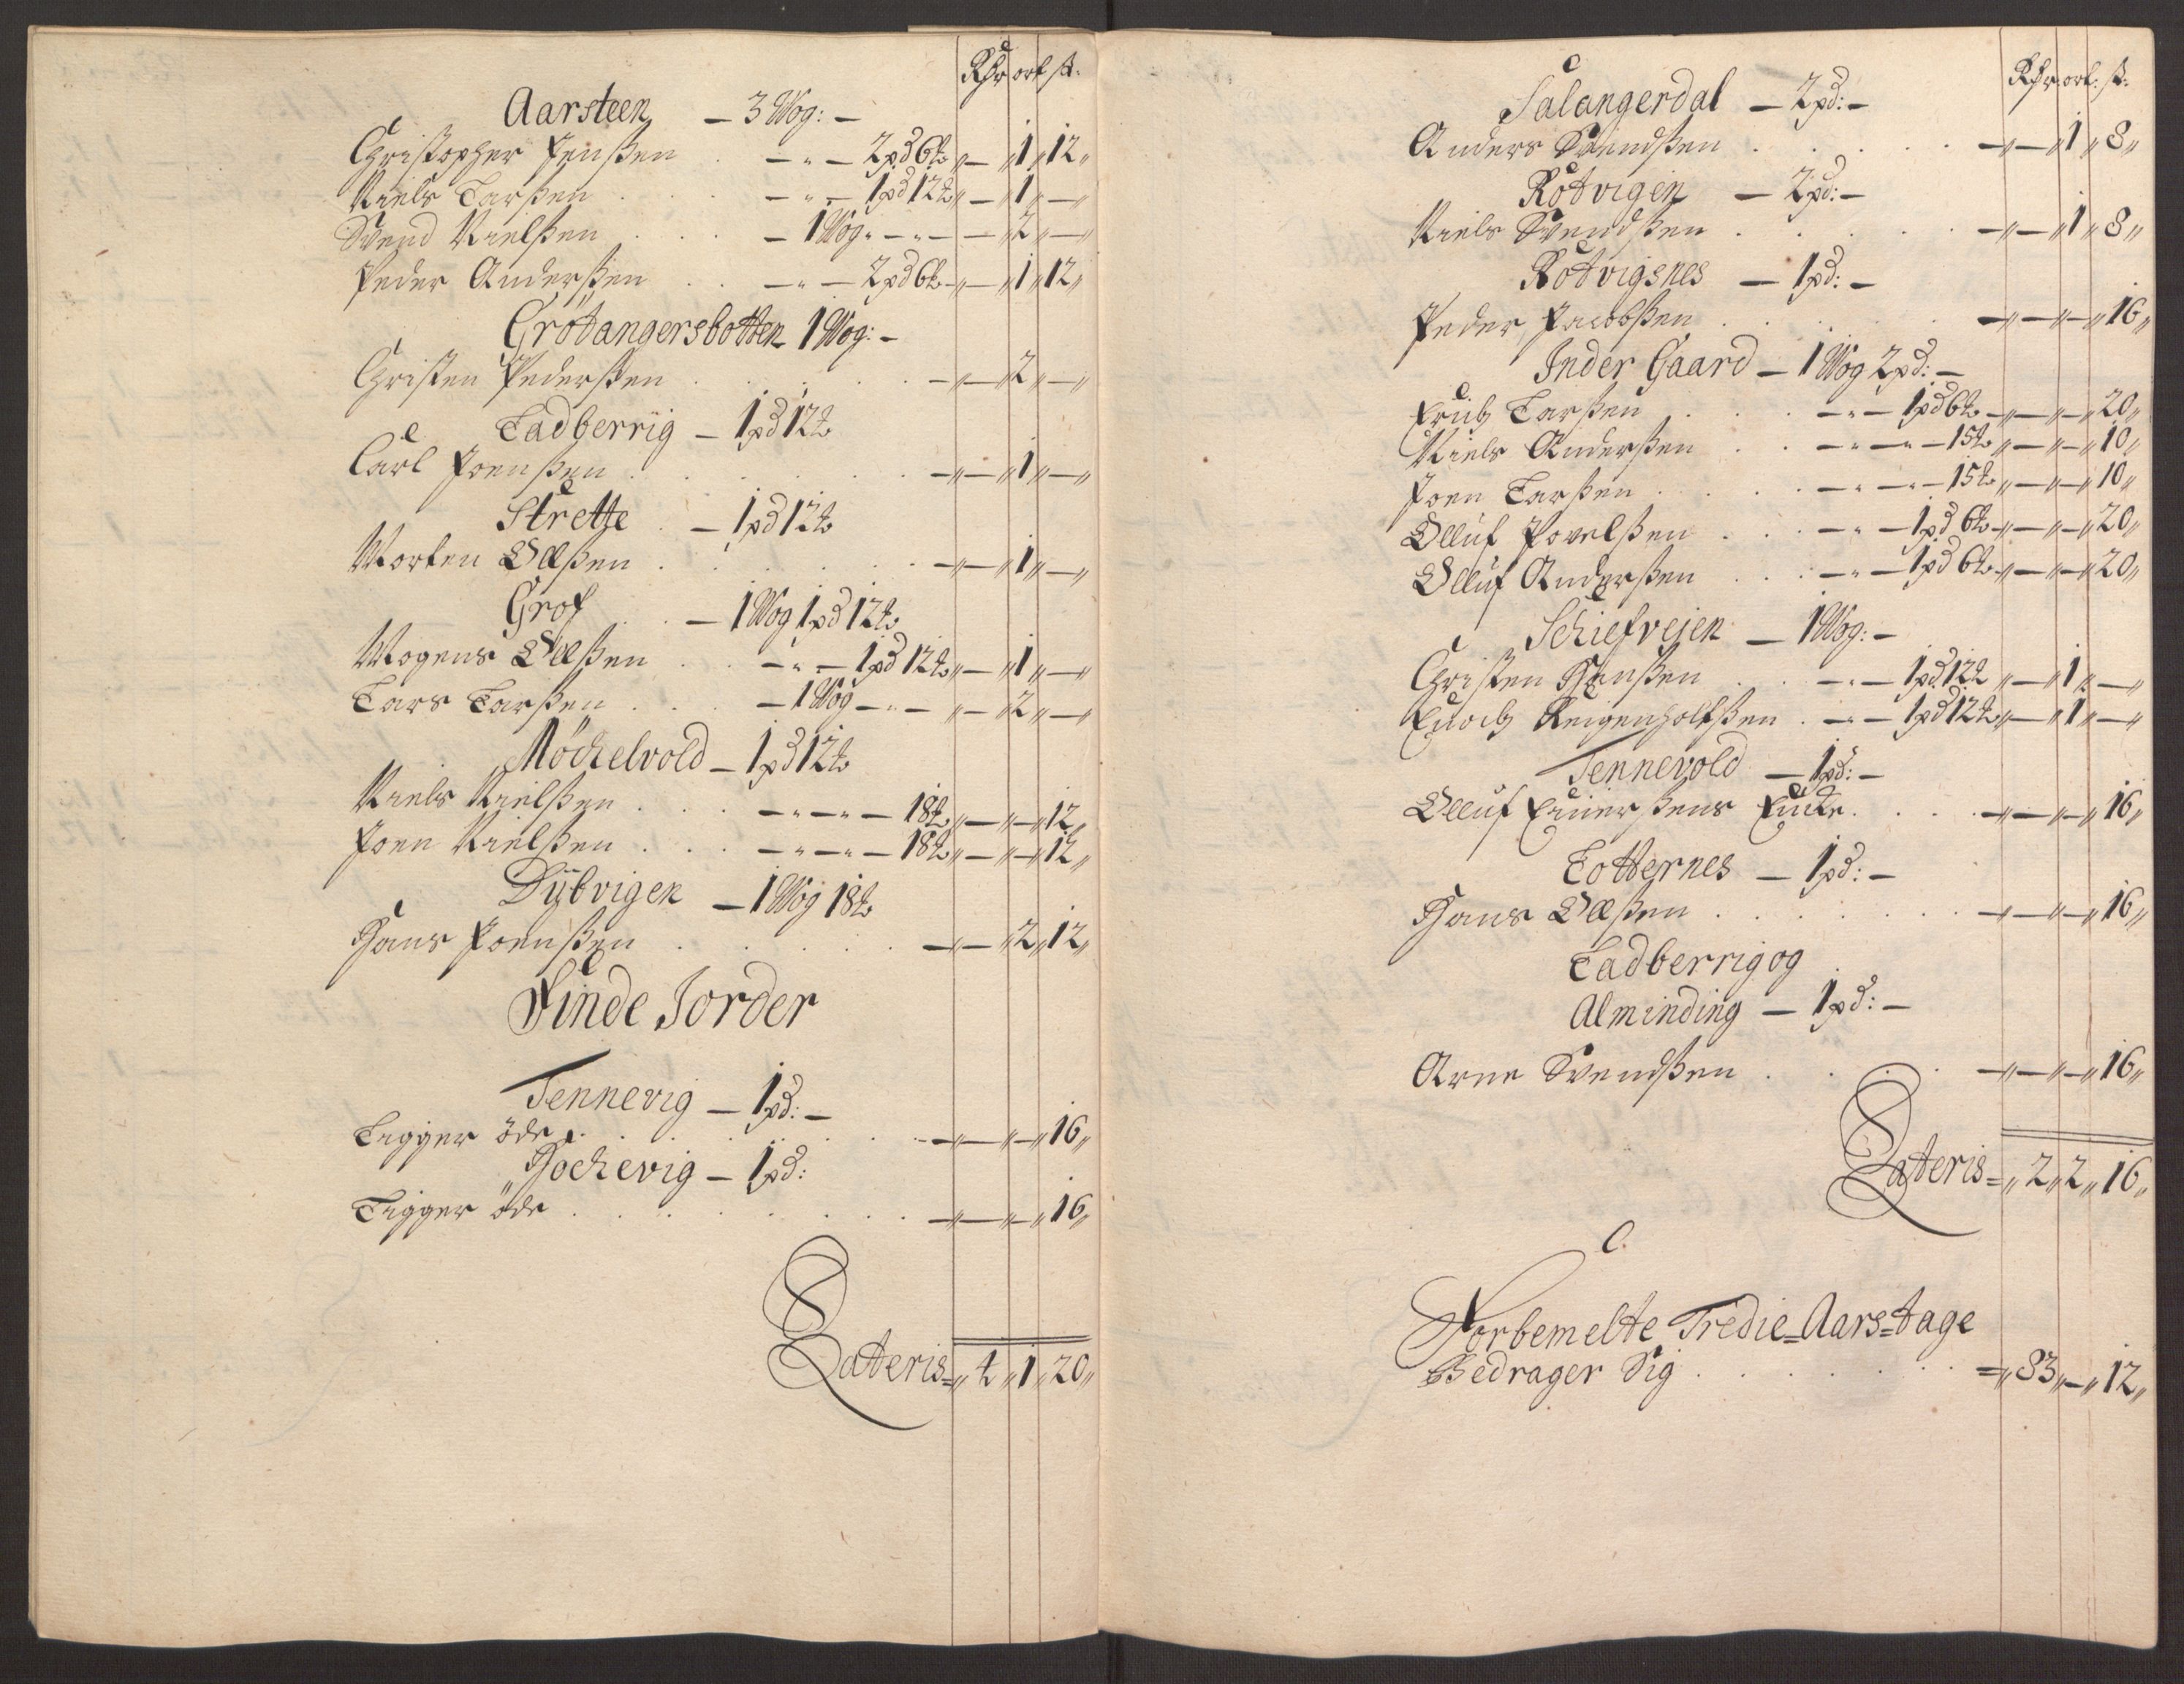 Rdr ort ß.
Aarsteen — 3 Wog: —
Christopher Jenßen . — „ — 2 pd 6 ℔ „ — „ 1 „ 12 „
Niels Larßen . . . — „ — 1 pd 12 ℔ „ — „ 1 „ — „
Svend Nielßen . . . — 1 Wog „ — „ — — „ 2 „ — „
Peder Anderßen . . — „ — 2 pd 6 ℔ — „ — „ 1 „ 12 „
Grötangersbotten 1 Wog: —
Christen Pederßen . . . . . — „ — „ 2 „ — „
Ladberrig — 1 pd 12 ℔
Carl Joenßen . . . . . . — „ — „ 1 „ — „
Strette . — 1 pd 12 ℔
Morten Olßen . . . . . . — „ — „ 1 „ — „
Grof . . — 1 Wog 1 pd 12 ℔
Mogens Olßen . . — „ — 1 pd 12 ℔ „ — „ 1 „ — „
Lars Larßen . . . — 1 Wog — „ — „ — „ 2 „ — „
Möchelvold — 1 pd 12 ℔
Niels Nielßen . . . — „ — „ — 18 ℔ „ — „ — „ 12 „
Joen Nielßen . . . — „ — „ — 18 ℔ „ — „ — „ 12 „
Dÿbvigen — 1 Wog 18 ℔
Hans Joenßen . . . . . — „ — „ 2 „ 12 „
Finde Jorder
Tennevig — 1 pd: —
Ligger öde . . . . . . . — „ — „ — „ 16 „
Hochevig — 1 pd:
Ligger öde . . . . . . . — „ — „ — „ 16 „
Lateris = „ 4 „ 1 „ 20 „
Rdr. ort. ß.
Salangerdal — 2 pd: —
Anders Svendßen . . . . . — „ — „ 1 „ 8 „
Rotvigen — 2 pd: —
Niels Svendßen . . . . . — „ — „ 1 „ 8 „
Rotvigsnes — 1 pd: —
Peder Jacobßen . . . . . — „ — „ — „ 16 „
Inder Gaard — 1 Wog 2 pd: —
Erich Larßen . . . — „ — 1 pd 6 ℔ — „ — „ — „ 20 „
Niels Anderßen . . — „ — „ — 15 ℔ „ — „ — „ 10 „
Joen Larßen . . . . — „ — „ — 15 ℔ „ — „ — „ 10 „
Olluf Povelßen . . . — „ — 1 pd 6 ℔ — „ — „ — „ 20 „
Olluf Anderßen . . . — „ — 1 pd 6 ℔ — „ — „ — „ 20 „
Schiefveien — 1 Wog: —
Christen Hanßen . . — „ — 1 pd 12 ℔ „ — „ 1 „ — „
Enoch Reigenholfßen . — „ — 1 pd 12 ℔ „ — „ 1 „ — „
Tennevold — 1 pd: —
Olluf Einerßens Encke . . . . — „ — „ — „ 16 „
Lotternes — 1 pd: —
Hans Olßen . . . . . . . — „ — „ — „ 16 „
Ladberrig og
Alminding — 1 pd: —
Arne Svendßen . . . . — „ — „ — „ 16 „
Lateris = „ 2 „ 2 „ 16 „
C.
Forbemelte Tredie=Aars=tage
Bedrager Sig . . . . . . = „ 83 „ — „ 12 „